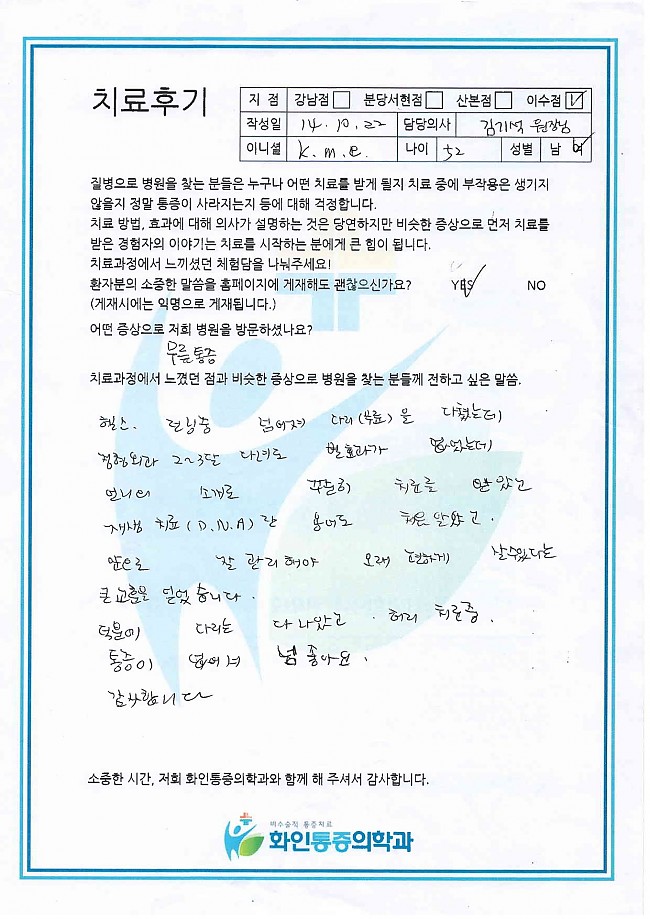 치료후기
지 점 강남점 분당서현점 산본점 이수점
작성일 14. 10. 22 담당의사 김기석 원장님
이니셜 k. m. e. 나이 52 성별 남 여
질병으로 병원을 찾는 분들은 누구나 어떤 치료를 받게 될지 치료 중에 부작용은 생기지
않을지 정말 통증이 사라지는지 등에 대해 걱정합니다.
치료 방법, 효과에 대해 의사가 설명하는 것은 당연하지만 비슷한 증상으로 먼저 치료를
받은 경험자의 이야기는 치료를 시작하는 분에게 큰 힘이 됩니다.
치료과정에서 느끼셨던 체험담을 나눠주세요!
환자분의 소중한 말씀을 홈페이지에 게재해도 괜찮으신가요? YES NO
(게재시에는 익명으로 게재됩니다.)
어떤 증상으로 저희 병원을 방문하셨나요?
무릎통증
치료과정에서 느꼈던 점과 비슷한 증상으로 병원을 찾는 분들께 전하고 싶은 말씀.
헬스. 런닝중 넘어져 다리(무릎)을 다쳤는데
정형외과 2~3달 다녀도 별효과가 없었는데
언니의 소개로 꾸준히 치료를 받았고
재생 치료(D.N.A)란 용어도 처음 알았고.
앞으로 잘 관리해야 오래 편하게 살수있다는
큰 교훈을 얻었습니다.
덕분에 다리는 다 나았고. 허리 치료중.
통증이 없어서 넘 좋아요.
감사합니다
소중한 시간, 저희 화인통증의학과와 함께 해 주셔서 감사합니다.
비수술적 통증치료
화인통증의학과